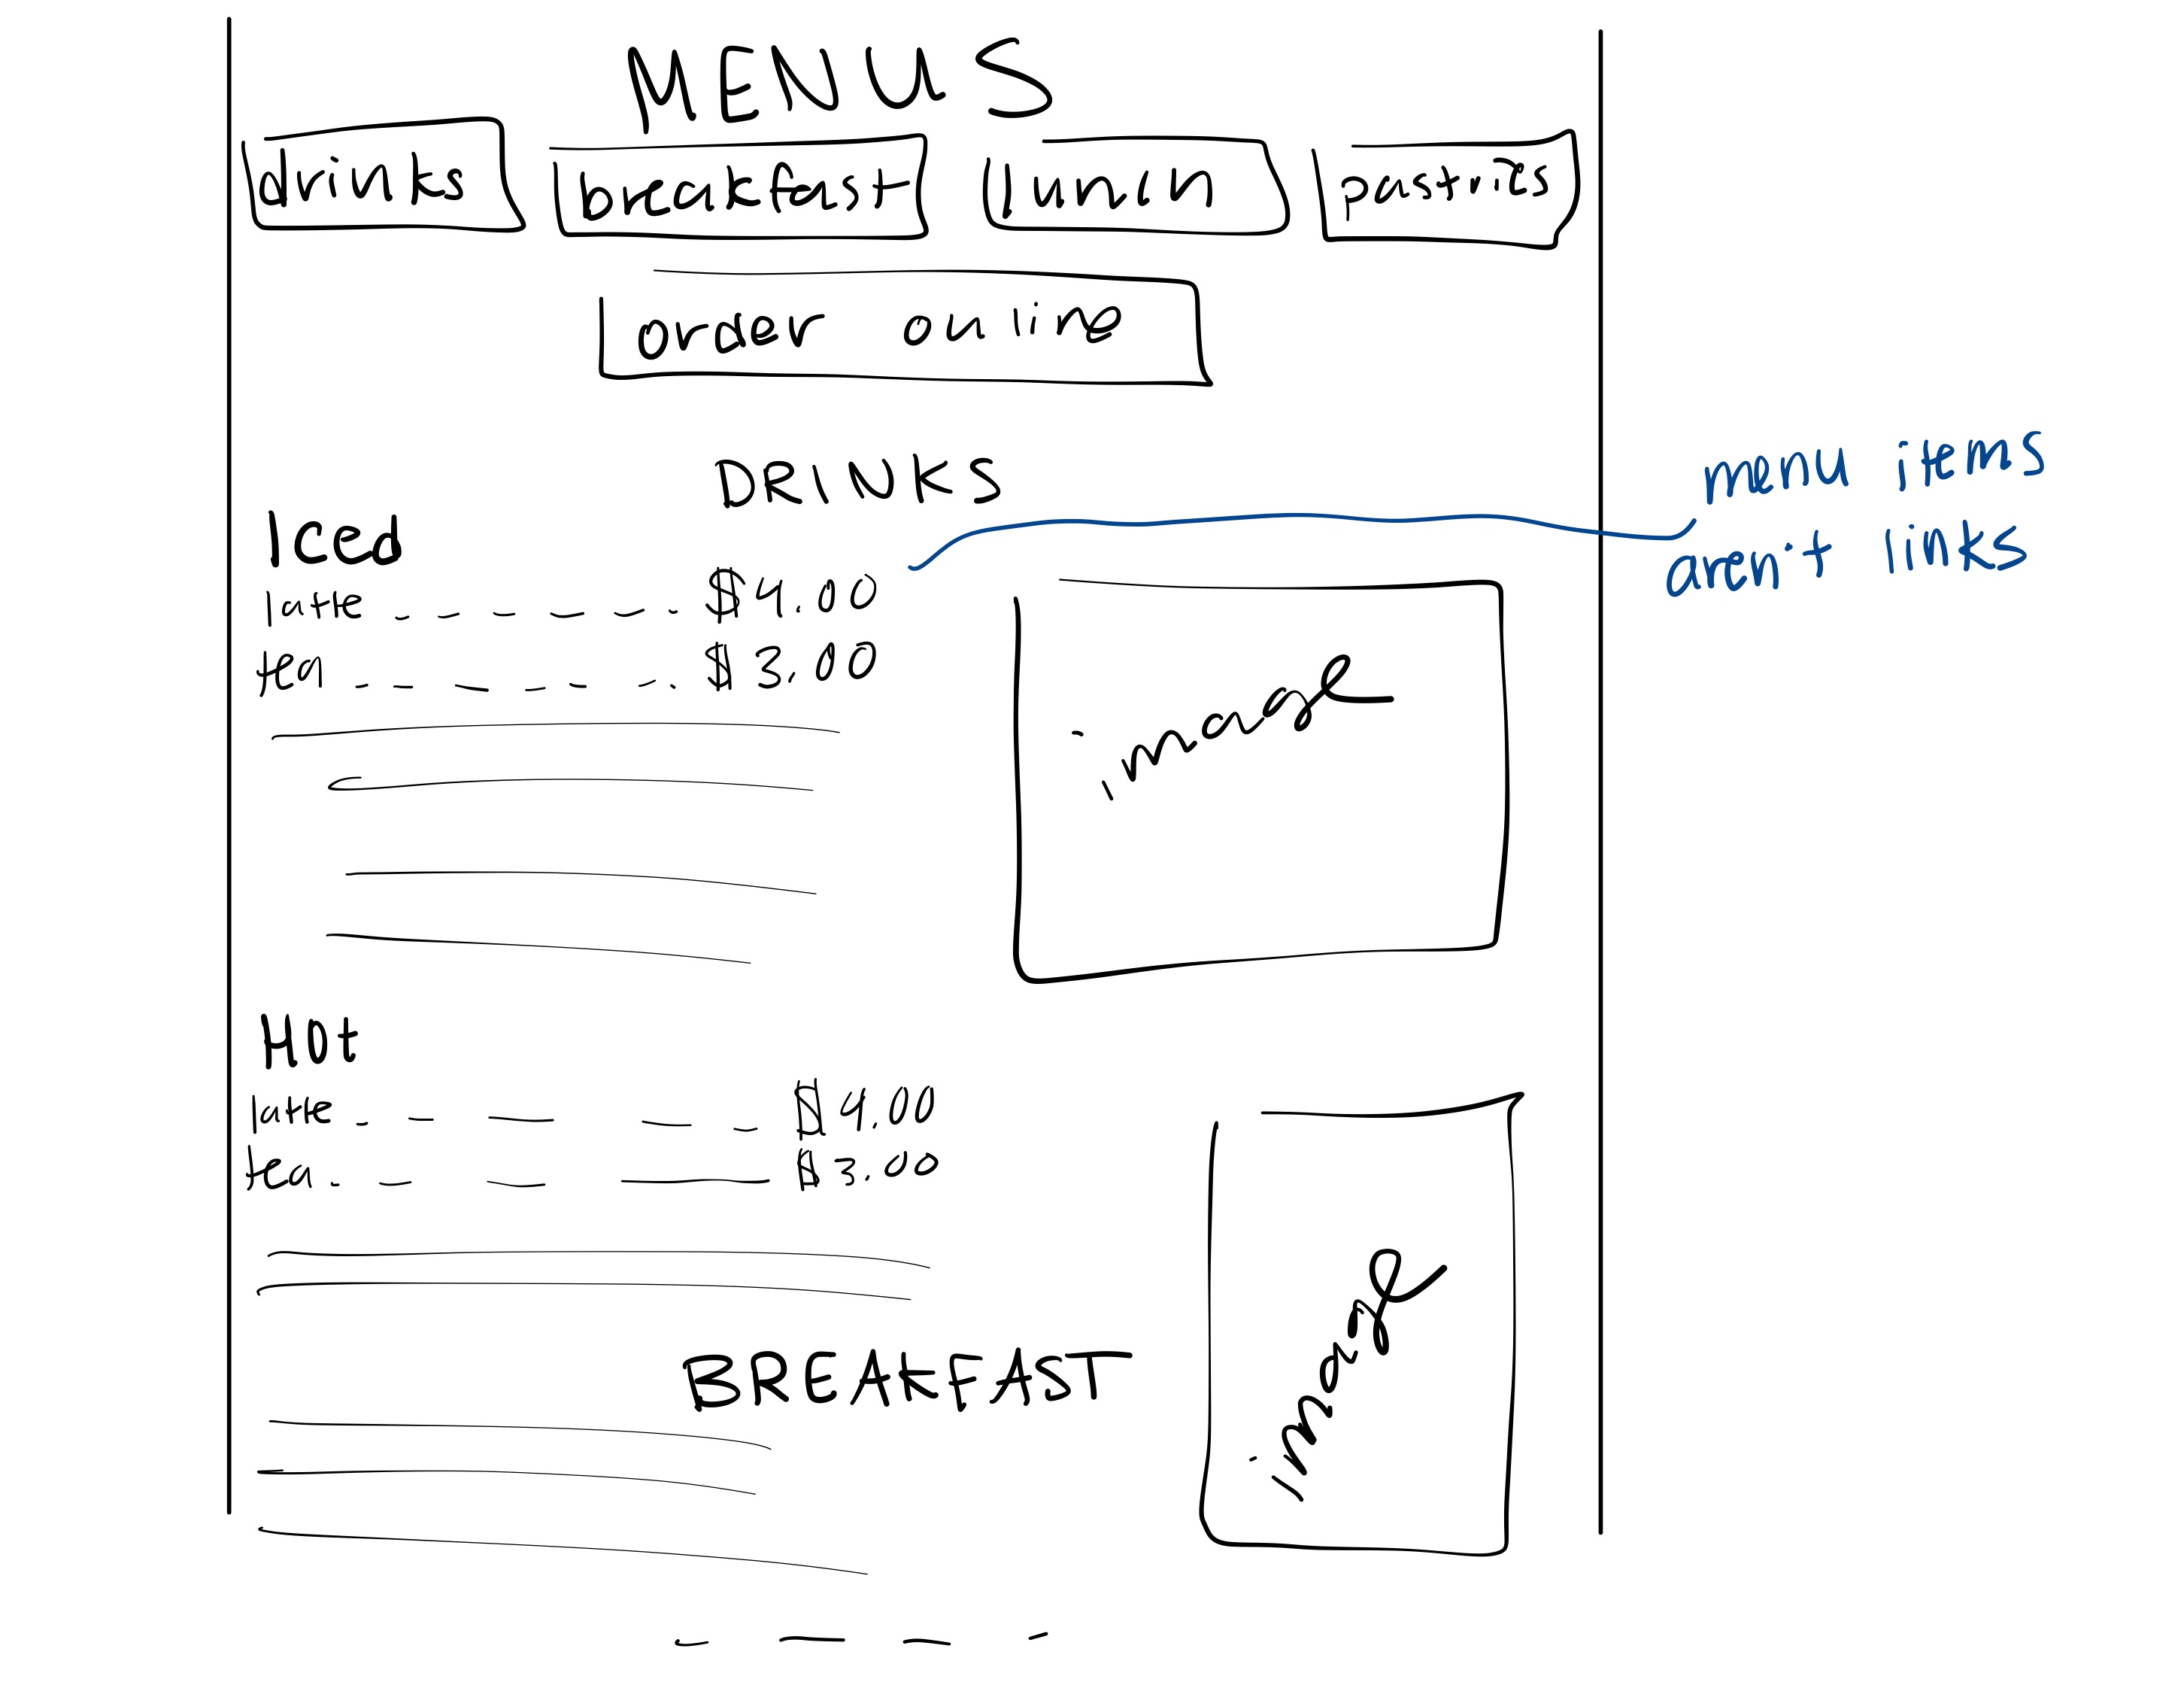 MENUS
drinks breakfast lunch pastries
order online
DRINKS
menu items
aren't links
Iced
latte $4.00
tea $3.00
image
Hot
latte $4.00
tea $3.00
image
BREAKFAST